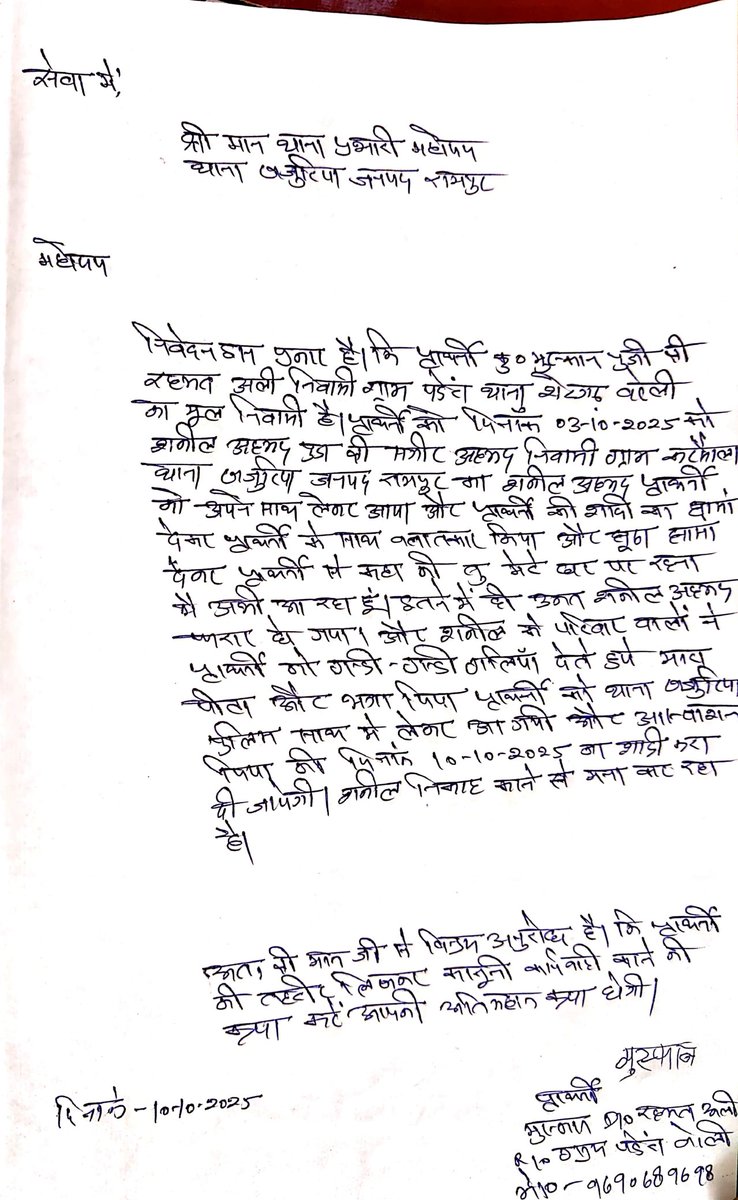 सेवा में,
श्री मान थाना प्रभारी महोदय
थाना अजुटिया जनपद रामपुर
महोदय
निवेदन इस प्रकार है। कि प्रार्थनी कु० मुस्कान पुत्री श्री
रहमत अली निवासी ग्राम थाना शेरगढ़ बरेली
का मूल निवासी है। प्रार्थनी को दिनांक 03-10-2025 को
शकील अहमद पुत्र श्री अहमद निवासी ग्राम
थाना जनपद रामपुर का शकील अहमद प्रार्थनी
को अपने साथ लेकर आया और प्रार्थनी को शादी का झासा
देकर प्रार्थनी के साथ बलात्कार किया और झूठा झासा
देकर प्रार्थनी से कहा की तु मेरे घर पर रहना
मै अभी आ रहा हूं। इतने में ही उक्त शकील अहमद
फरार हो गया। और शकील के परिवार वालों ने
प्रार्थनी को गन्दी-गन्दी गालियाँ देते हुये मारा
पीटा और भगा दिया प्रार्थनी को थाना
पुलिस साथ में लेकर आ गयी और आश्वाशन
दिया की दिनांक 10-10-2025 का शादी करा
दी जायेगी। शकील निकाह करने से मना कर रहा
है।
अतः श्री मान जी से विनम्र अनुरोध है। कि प्रार्थनी
की तहरीर लिखकर कानूनी कार्यवाही करने की
कृपा करें आपकी अतिमहान कृपा होगी।
मुस्कान
दिनांक - 10-10-2025
प्रार्थनी
मुस्कान D/o रहमत अली
R/o ग्राम बरेली
मो० - 9690689698